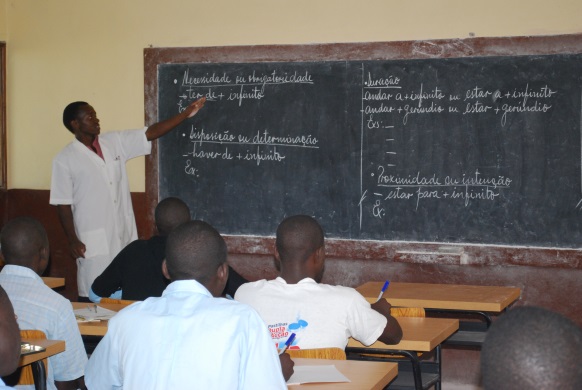 • Necessidade ou obrigatoridade
→ ter de + infinito
Ex:
• Disposição ou determinação
– haver de + infinito
Ex:
• Duração
– andar a + infinito ou estar a + infinito
– andar + gerúndio ou estar + gerúndio
Exs: –
–
–
–
• Proximidade ou intenção
– estar para + infinito
Ex: